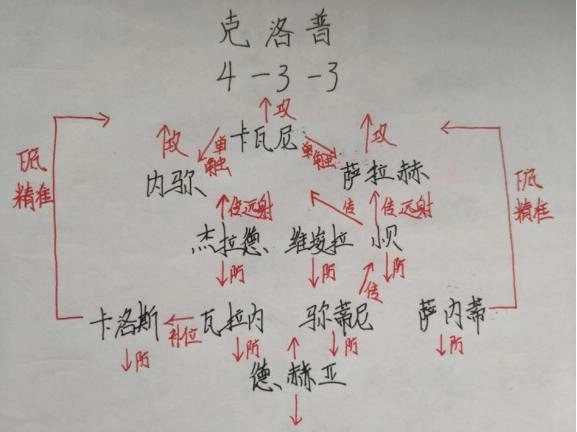 克洛普
4-3-3
攻
攻 单触 卡瓦尼 单触 攻
内弥尔 萨拉赫
底 精准 底 精准
传远射 传 传远射
杰拉德 维埃拉 小贝
防 防 传 防
卡洛斯 补位 瓦拉内 弥蒂尼 萨内蒂
防 防 防 防
德赫亚